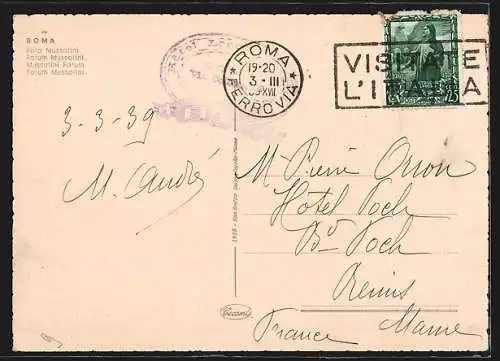 ROMA
Foro Mussolini.
Forum Mussolini.
Mussolini Forum
Forum Mussolini.
ROMA
19-20
3-III
XVII
FERROVIA
VISITATE
L'ITALIA
25
3-3-39
M. André
Mr Pierre Orion
Hôtel Foch
Bd Foch
Reims
Marne
France